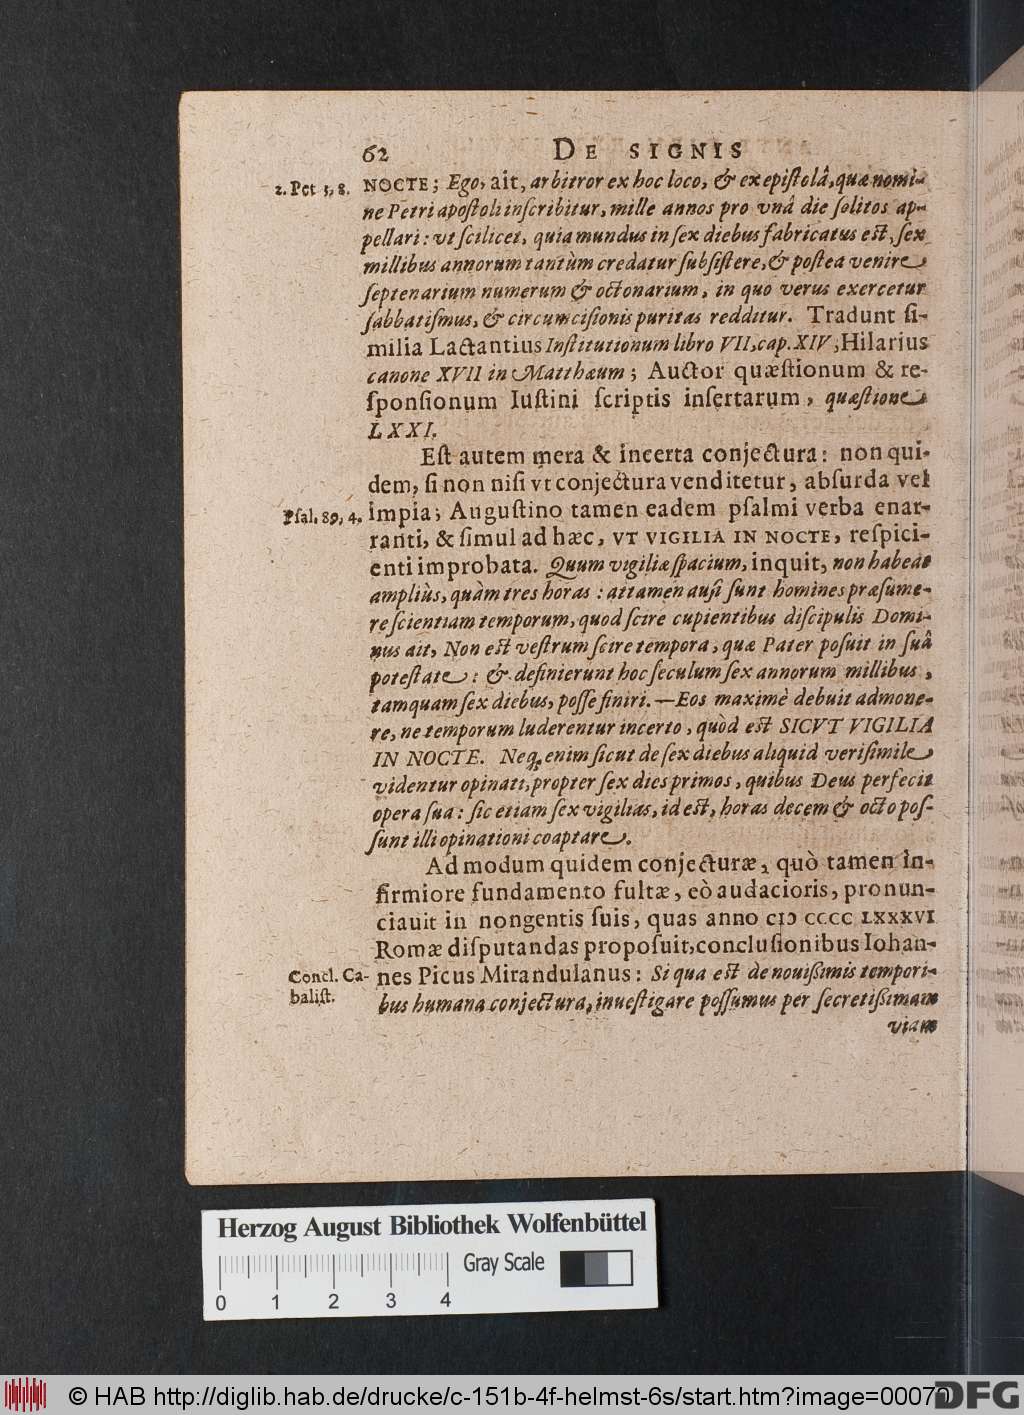 62 DE SIGNIS
2. Pet 3, 8. NOCTE; Ego, ait, arbitror ex hoc loco, & ex epistolâ, quæ nomi-
ne Petri apostoli inscribitur, mille annos pro vnâ die solitos ap-
pellari: vt scilicet, quia mundus in sex diebus fabricatus est, sex
millibus annorum tantùm credatur subsistere, & postea venire
septenarium numerum & octonarium, in quo verus exercetur
sabbatismus, & circumcisionis puritas redditur. Tradunt si-
milia Lactantius Institutionum libro VII, cap. XIV, Hilarius
canone XVII in Matthæum; Auctor quæstionum & re-
sponsionum Iustini scriptis insertarum, quæstione
LXXI.
Est autem mera & incerta conjectura: non qui-
dem, si non nisi vt conjectura venditetur, absurda vel
Psal. 89, 4. impia; Augustino tamen eadem psalmi verba enar-
ranti, & simul ad hæc, VT VIGILIA IN NOCTE, respici-
enti improbata. Quum vigiliæ spacium, inquit, non habeat
ampliùs, quàm tres horas: attamen ausi sunt homines præsume-
re scientiam temporum, quod scire cupientibus discipulis Domi-
nus ait, Non est vestrum scire tempora, quæ Pater posuit in suâ
potestate: & definierunt hoc seculum sex annorum millibus,
tamquam sex diebus, posse finiri. — Eos maximè debuit admone-
re, ne temporum luderentur incerto, quòd est SICVT VIGILIA
IN NOCTE. Neq; enim sicut de sex diebus aliquid verisimile
videntur opinati, propter sex dies primos, quibus Deus perfecit
opera sua: sic etiam sex vigilias, id est, horas decem & octo pos-
sunt illi opinationi coaptare.
Ad modum quidem conjecturæ, quò tamen in-
firmiore fundamento fultæ, eò audacioris, pronun-
ciauit in nongentis suis, quas anno cIↃ CCCC LXXXVI
Romæ disputandas proposuit, conclusionibus Iohan-
Concl. Ca- nes Picus Mirandulanus: Si qua est de nouissimis tempori-
balist. bus humana conjectura, inuestigare possumus per secretissimam
viam
Herzog August Bibliothek Wolfenbüttel
Gray Scale
0 1 2 3 4
© HAB http://diglib.hab.de/drucke/c-151b-4f-helmst-6s/start.htm?image=00070
DFG